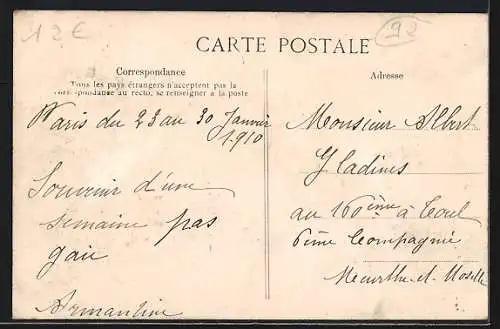 12€
92
CARTE POSTALE
Correspondance
Tous les pays étrangers n'acceptent pas la
correspondance au recto, se renseigner à la poste
Paris du 23 au 30 Janvier
1910
Souvenir d'une
semaine pas
gaie
Armantine
Adresse
Monsieur Albert
Gladines
au 160ème à Toul
6ème Compagnie
Meurthe-et-Moselle